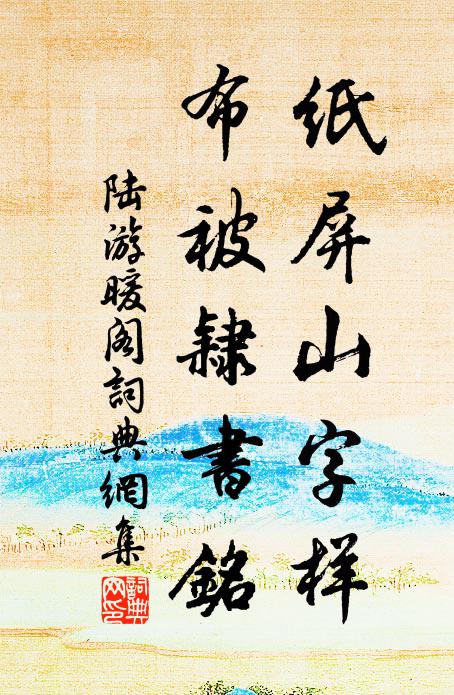 纸屏山字样
布被隸書銘
陆游暖阁詞典網集
詞典